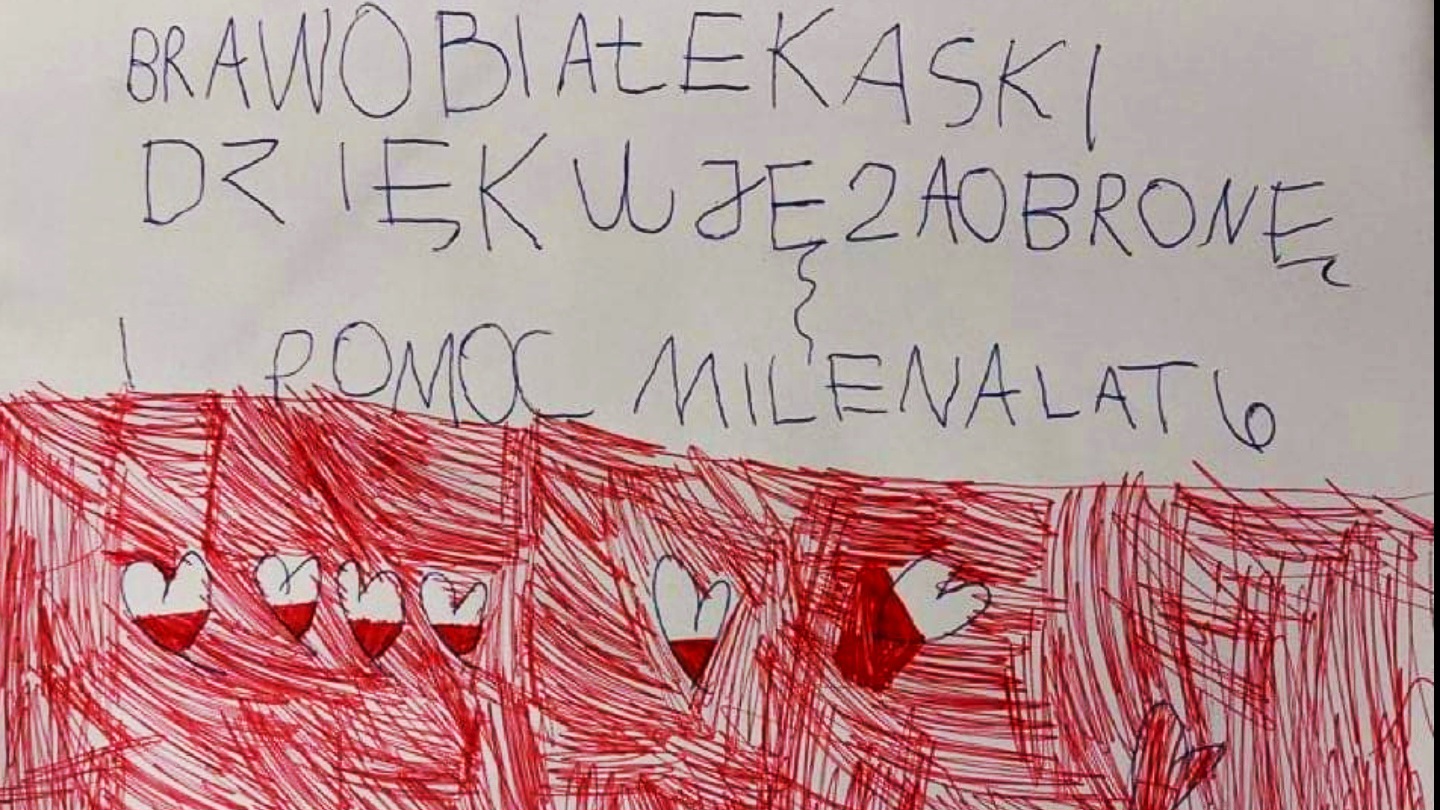 BRAWO BIAŁE KASKI
DZIĘKUJĘ ZA OBRONĘ
I POMOC MILENA LAT 6